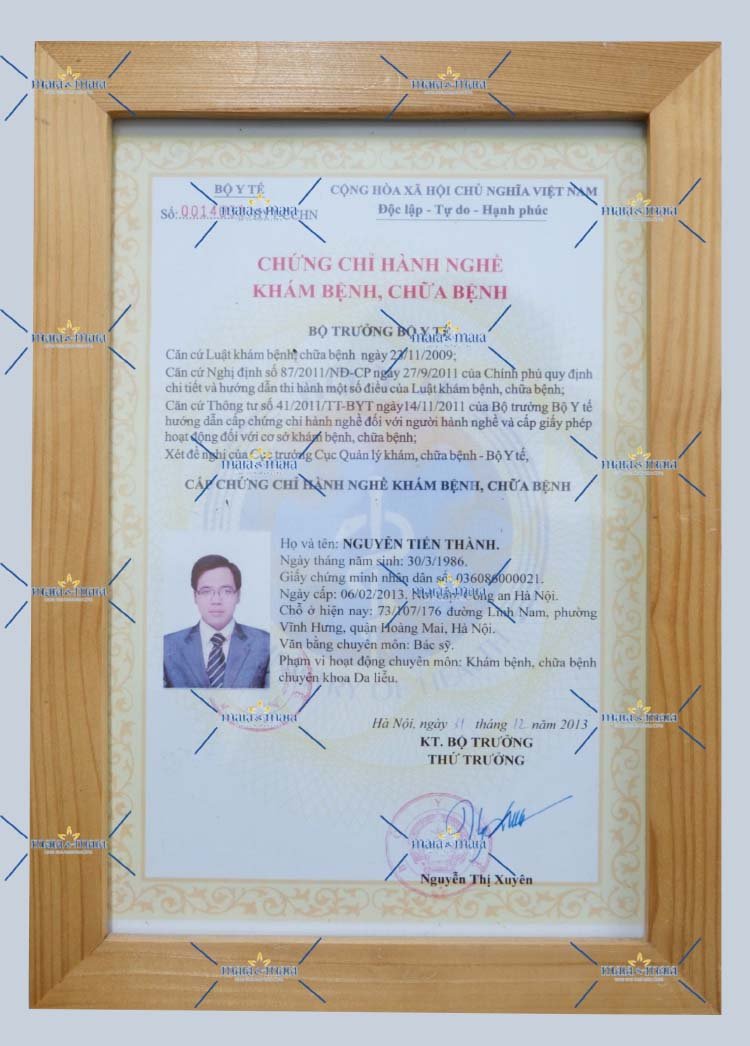 BỘ Y TẾ
CỘNG HÒA XÃ HỘI CHỦ NGHĨA VIỆT NAM
Số: CCHN
Độc lập - Tự do - Hạnh phúc
CHỨNG CHỈ HÀNH NGHỀ
KHÁM BỆNH, CHỮA BỆNH
BỘ TRƯỞNG BỘ Y TẾ
Căn cứ Luật khám bệnh, chữa bệnh ngày 23/11/2009;
Căn cứ Nghị định số 87/2011/NĐ-CP ngày 27/9/2011 của Chính phủ quy định
chi tiết và hướng dẫn thi hành một số điều của Luật khám bệnh, chữa bệnh;
Căn cứ Thông tư số 41/2011/TT-BYT ngày14/11/2011 của Bộ trưởng Bộ Y tế
hướng dẫn cấp chứng chỉ hành nghề đối với người hành nghề và cấp giấy phép
hoạt động đối với cơ sở khám bệnh, chữa bệnh;
Xét đề nghị của Cục trưởng Cục Quản lý khám, chữa bệnh - Bộ Y tế,
CẤP CHỨNG CHỈ HÀNH NGHỀ KHÁM BỆNH, CHỮA BỆNH
Họ và tên: NGUYỄN TIẾN THÀNH.
Ngày tháng năm sinh: 30/3/1986.
Giấy chứng minh nhân dân số: 036086000021.
Ngày cấp: 06/02/2013. Nơi cấp: Công an Hà Nội.
Chỗ ở hiện nay: 73/107/176 đường Lĩnh Nam, phường
Vĩnh Hưng, quận Hoàng Mai, Hà Nội.
Văn bằng chuyên môn: Bác sỹ.
Phạm vi hoạt động chuyên môn: Khám bệnh, chữa bệnh
chuyên khoa Da liễu.
Hà Nội, ngày 31 tháng 12 năm 2013
KT. BỘ TRƯỞNG
THỨ TRƯỞNG
Nguyễn Thị Xuyên
mara&mara